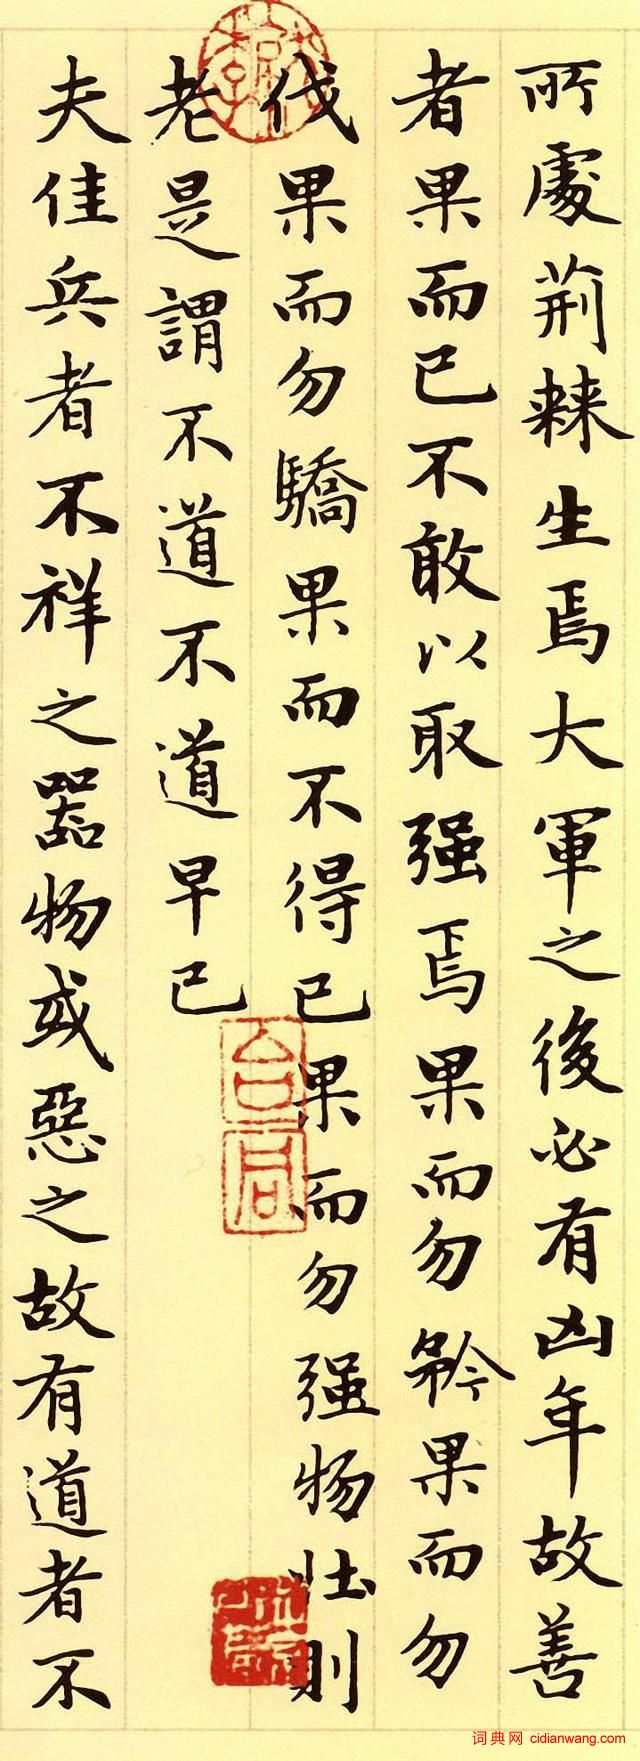 所處荊棘生焉大軍之後必有凶年故善
者果而已不敢以取强焉果而勿矜果而勿
伐果而勿驕果而不得已果而勿强物壯則
老是謂不道不道早已
夫佳兵者不祥之器物或惡之故有道者不
词典网 cidianwang.com